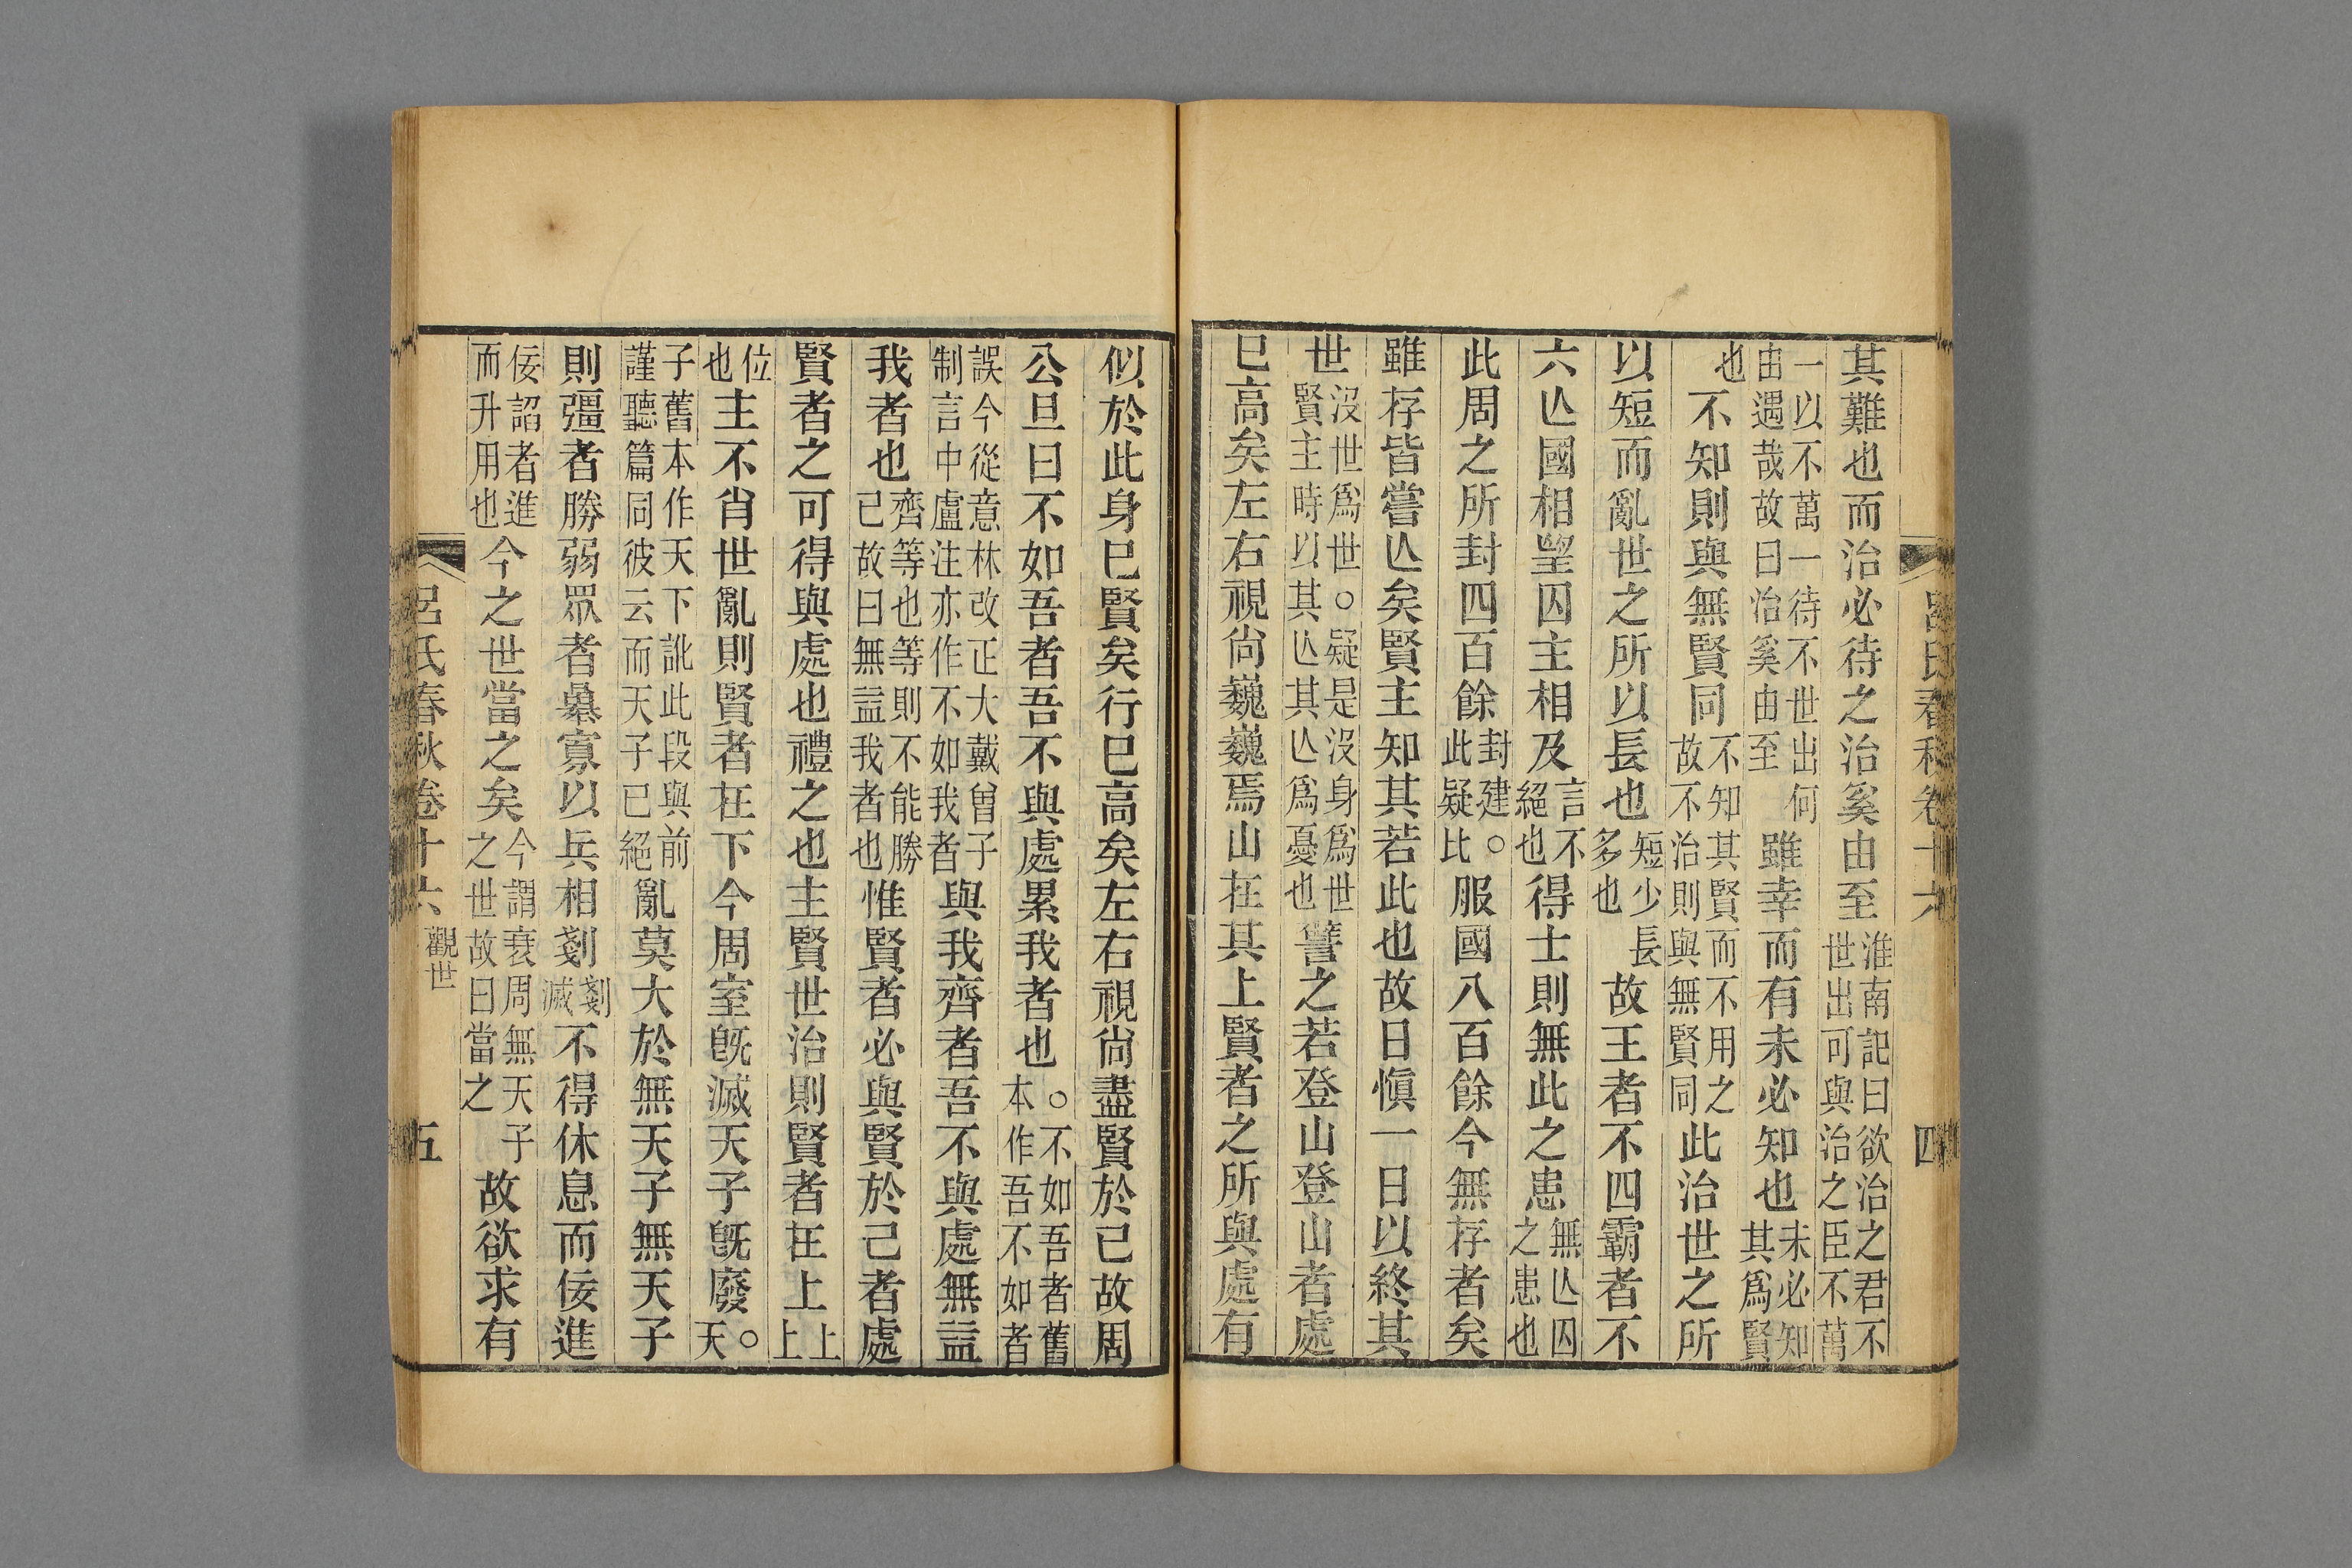 呂氏春秋卷十六 四
其難也而治必待之治奚由至淮南記曰欲治之君不世出可與治之臣不萬
一以不萬一待不世出何由遇哉故曰治奚由至雖幸而有未必知也未必知其爲賢
也不知則與無賢同不知其賢而不用之故不治則與無賢同此治世之所
以短而亂世之所以長也短少長多也故王者不四霸者不
六亾國相朢囚主相及言不絕也得士則無此之患無亾囚之患也
此周之所封四百餘封建○此疑比服國八百餘今無存者矣
雖存皆嘗亾矣賢主知其若此也故日愼一日以終其
世沒世爲世○疑是沒身爲世賢主時以其亾其亾爲憂也譬之若登山登山者處
已高矣左右視尙巍巍焉山在其上賢者之所與處有
似於此身已賢矣行已高矣左右視尙盡賢於己故周
公旦曰不如吾者吾不與處累我者也○不如吾者舊本作吾不如者
誤今從意林改正大戴曾子制言中盧注亦作不如我者與我齊者吾不與處無益
我者也齊等也等則不能勝己故曰無益我者也惟賢者必與賢於己者處
賢者之可得與處也禮之也主賢世治則賢者在上上上
位也主不肖世亂則賢者在下今周室旣滅天子旣廢○天
子舊本作天下訛此段與前謹聽篇同彼云而天子已絕亂莫大於無天子無天子
則彊者勝弱眾者暴寡以兵相剗剗滅不得休息而佞進
佞諂者進而升用也今之世當之矣今謂衰周無天子之世故曰當之故欲求有
呂氏春秋卷十六 觀世 五